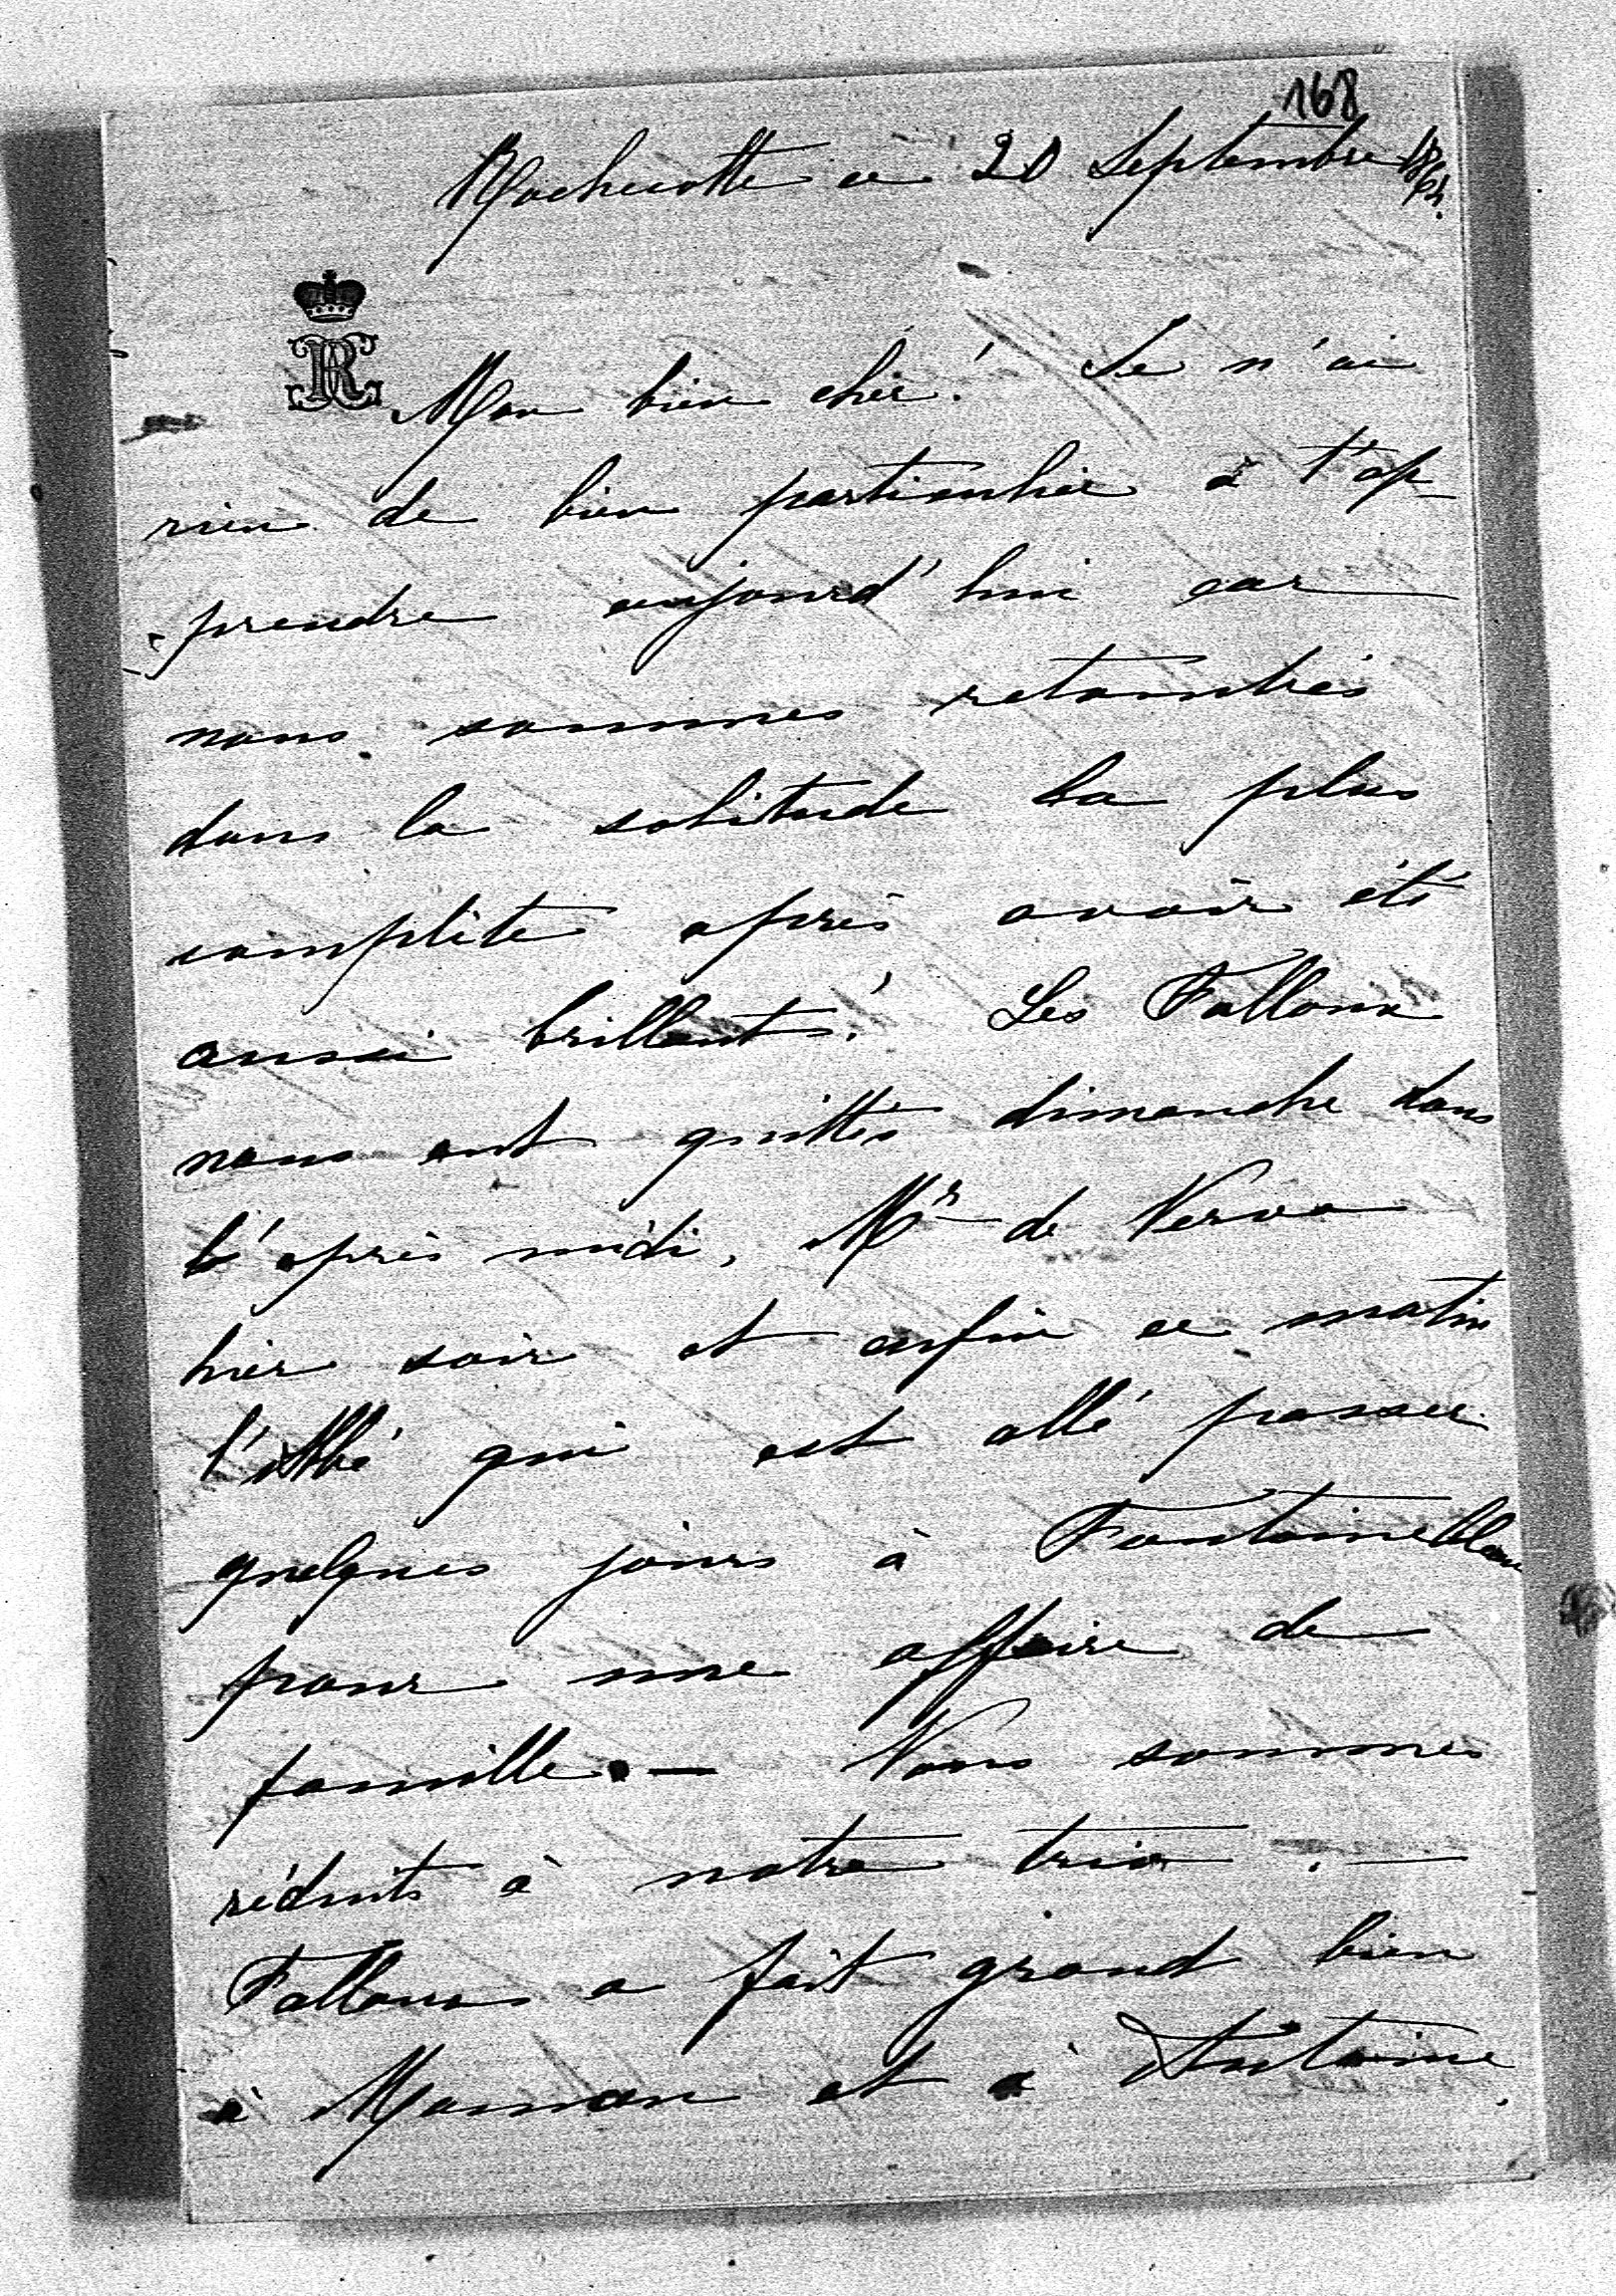 168
Rochecotte ce 20 Septembre 1864.
Mon bien cher! Je n'ai
rien de bien particulier à t'ap-
prendre aujourd'hui car
nous sommes retombés
dans la solitude la plus
complète après avoir été
aussi brillants! Les Falloux
nous ont quittés dimanche dans
l'après midi, Mr de Nerva
hier soir et enfin ce matin
l'Abbé qui est allé passer
quelques jours à Fontainebleau
pour une affaire de
famille. — Nous sommes
réduits à notre trio. —
Falloux a fait grand bien
à Maman et à Antoine.